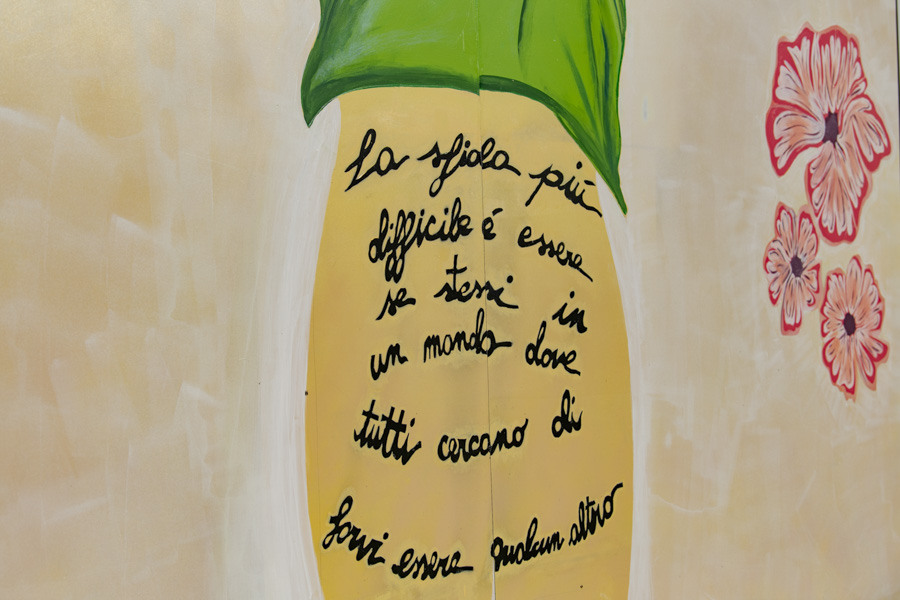 La sfida più
difficile é essere
se stessi in
un mondo dove
tutti cercano di
farvi essere qualcun altro